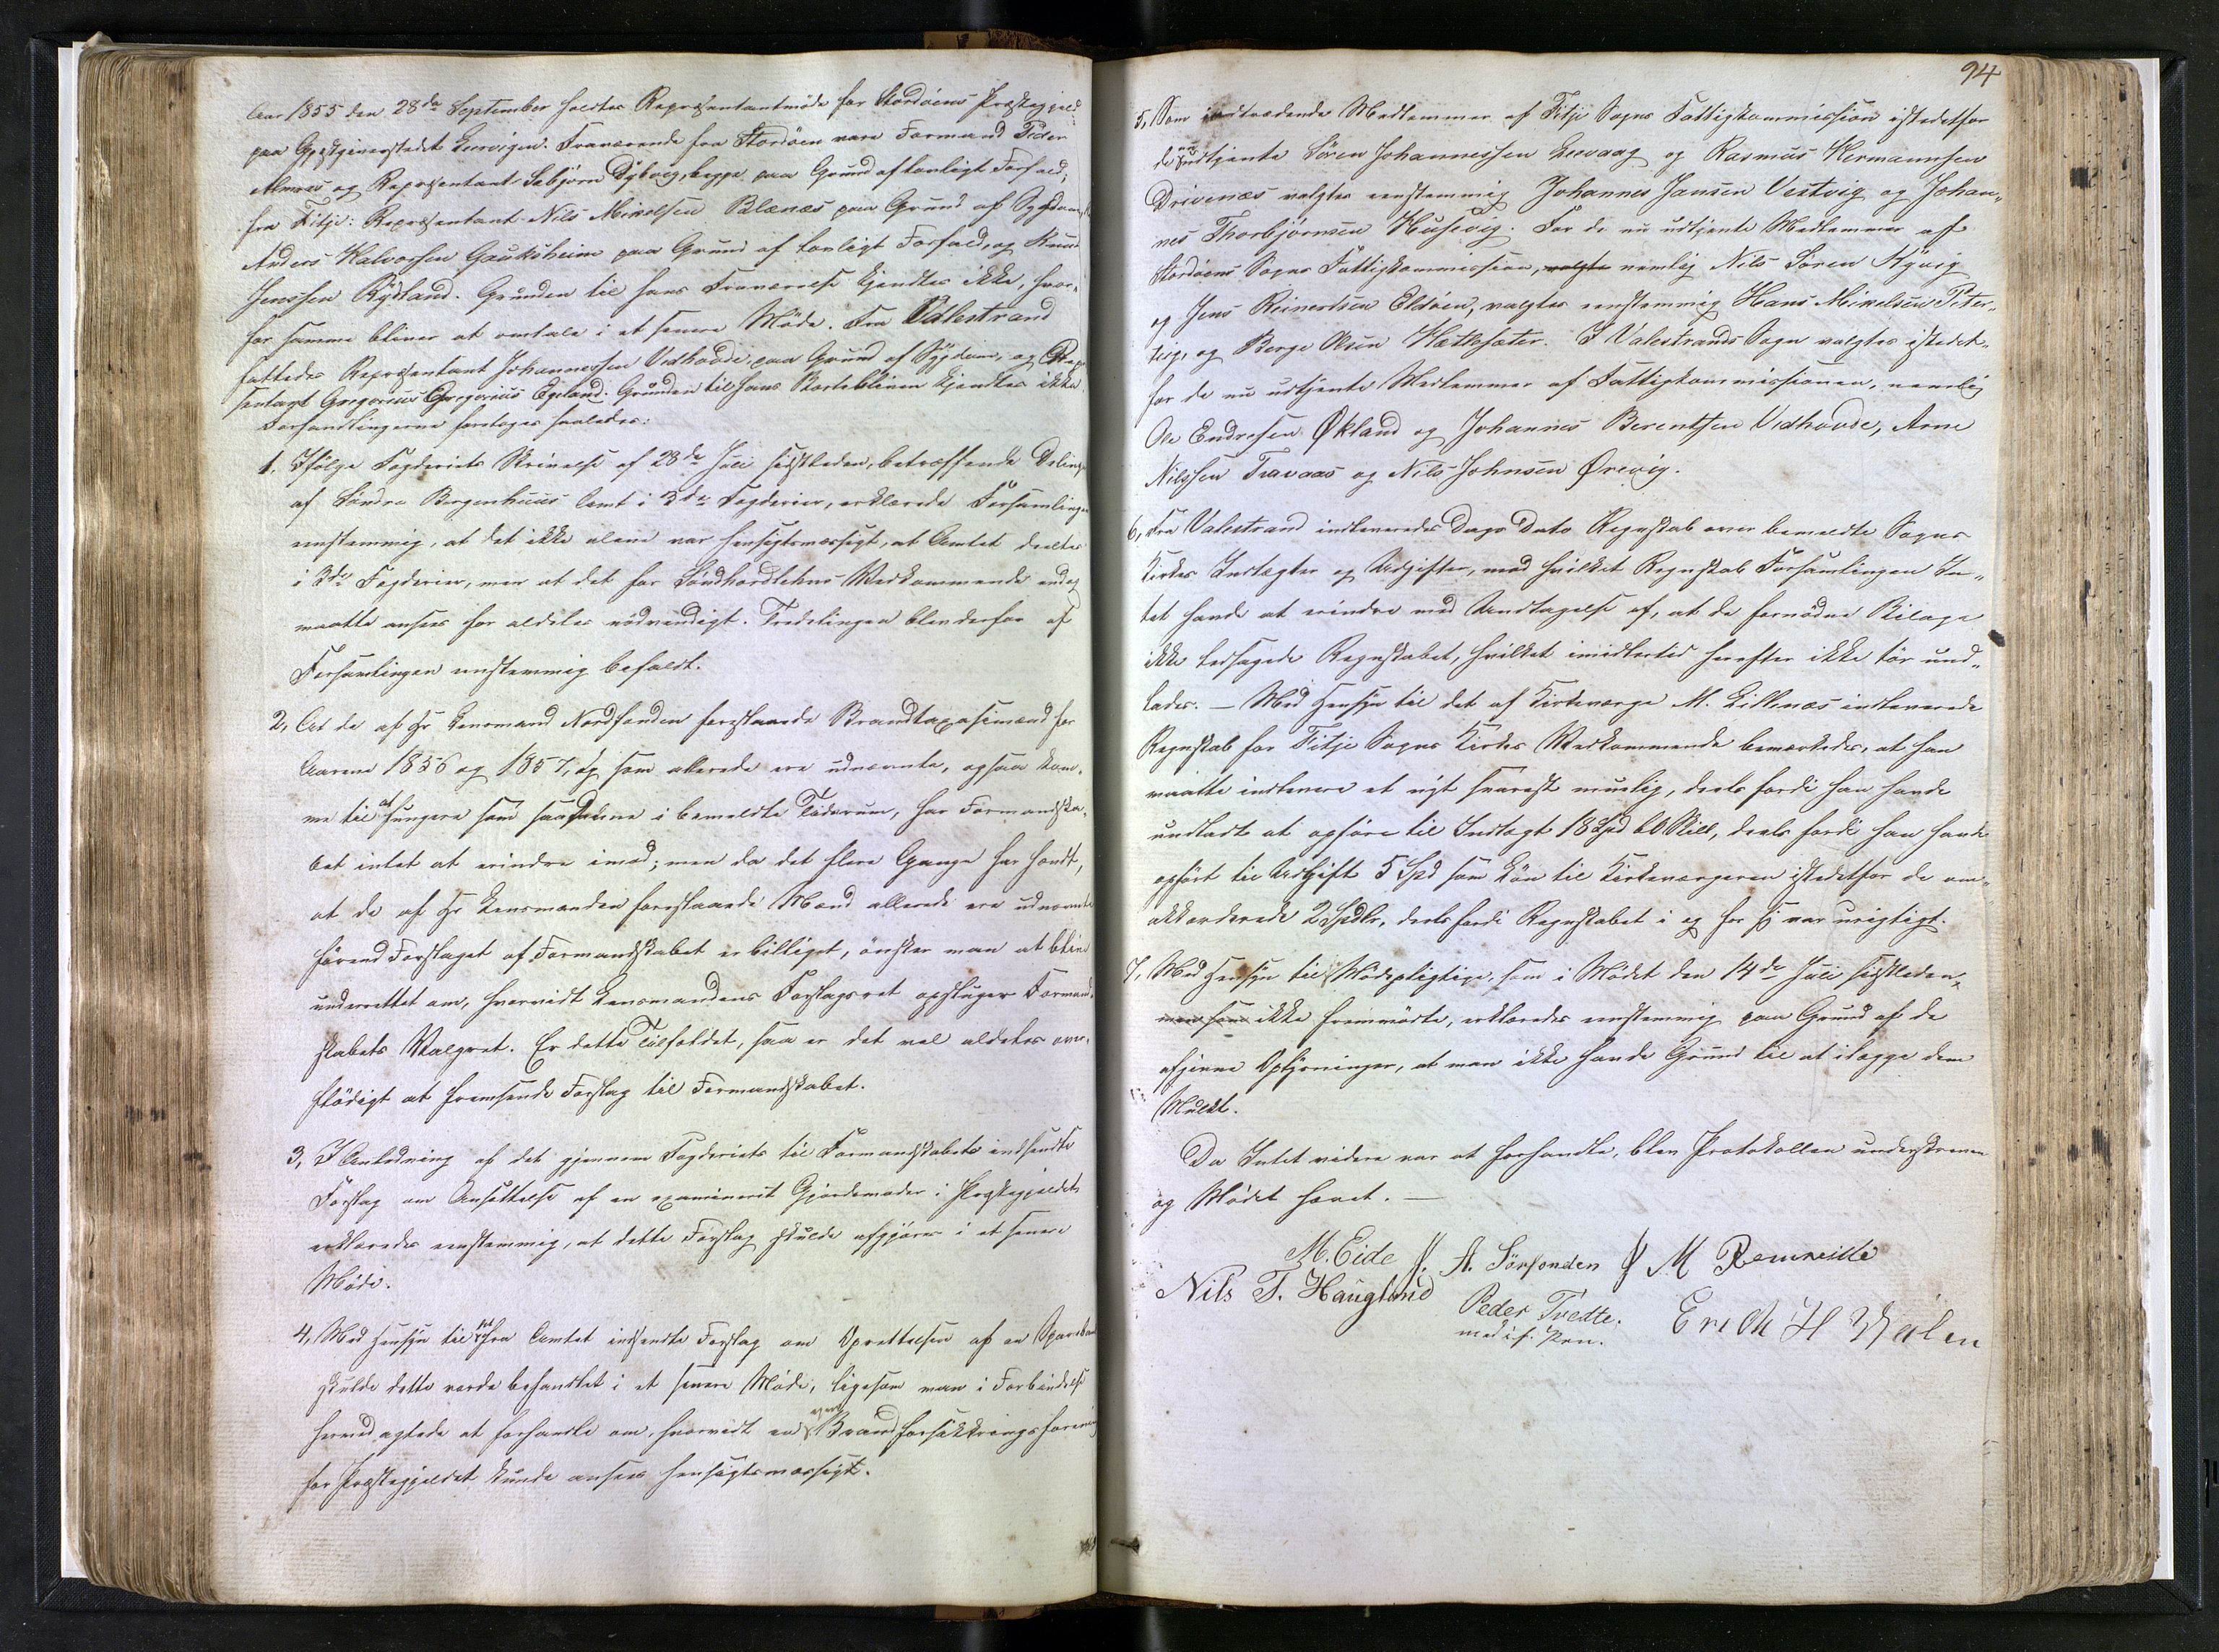 Aar 1855 den 28de September holdtes Repræsentantmöde for Stordöens Præstegjeld
paa Gjæstgiverstedet Leervigen. Fraværende fra Stordöen vare Formand Peder
Almaas og Repræsentant Sæbjörn Dybvig, begge paa Grund af lovligt Forfald;
fra Fitje: Repræsentant Nils Mikelsen Blænæs paa Grund af Sygdom,
Anders Halvorsen Gauksheim paa Grund af lovligt Forfald, og Knud
Jenssen Rydland. Grunden til hans Fraværelse kjendtes ikke, hvor-
for samme bliver at omtale i et senere Möde. Fra Valestrand
fattedes Repræsentant Johannessen Vidhovde, paa Grund af Sygdom, og Repræ-
sentant Gregorius Gregorius Egeland. Grunden til hans Bortebliven kjendtes ikke
Forhandlingerne foretoges saaledes:
1. Ifölge Fogderiets Skrivelse af 28de Juli sidstleden, betræffende Deling
af Söndre Bergenhuus Amt i 3de Fogderier, erklærede Forsamlingen
eenstemmig, at det ikke alene var hensigtsmæssigt, at Amtet deeltes
i 3de Fogderier, men at det for Söndhordlehns Vedkommende endog
maatte ansees for aldeles nödvendigt. Tredelingen blev derfor af
Forsamlingen eenstemmig befaldt.
2, At de af Hr Lensmand Nordfonden foreslaaede Brandtaxasimænd for
Aarene 1856 og 1857, og som allerede ere udnævnte, ogsaa kom-
me til at fungere som saadanne i bemeldte Tidsrum, har Formandska-
bet intet at erindre imod; men da det flere Gange har hændt,
at de af Hr Lensmanden foreslaaede Mænd allerede ere udnævnte
förend Forslaget af Formandskabet er billiget, önsker man at blive
underrettet om, hvorvidt Lensmandens Forslagsret opsluger Formand-
skabets Valgret. Er dette Tilfældet, saa er det vel aldeles over-
flödigt at fremsende Forslag til Formandskabet.
3, I Anledning af det gjennem Fogderiets til Formandskabets indsendte
Forslag om Ansættelse af en examineret Gjordemoder i Præstegjeldet
erklæredes eenstemmig, at dette Forslag skulde afgjöres i et senere
Möde.
4, Med Hensyn til det fra Amtet indsendte Forslag om Oprettelsen af en Sparebank
skulde dette vorde behandlet i et senere Möde, ligesom man i Forbindelse
hermed agtede at forhandle om, hvorvidt en Brandforsikkringsforening
for Præstegjeldet kunde ansees hensigtsmæssigt.
94
5, Som indtrædende Medlemmer af Fitje Sogns Fattigkommission istedetfor
de nu udtjente Sören Johannessen Leevaag og Rasmus Hermannsen
Drivenæs valgtes eenstemmig Johannes Jansen Vestvig og Johan-
nes Thorbjörnsen Husevig. For de nu udtjente Medlemmer af
Stordöens Sogns Fattigkommission, valgte nemlig Nils Sören Kyvig
og Jens Reinertsen Eldöen, valgtes eenstemmig Hans Mikelsen Peter-
teig, og Berge Olsen Hættesæter. I Valestrands Sogn valgtes istedet-
for de nu udtjente Medlemmer af Fattigkommissionen, nemlig
Ole Endresen Økland og Johannes Berentsen Vidhovde, Arne
Nilssen Travaas og Nils Johnsen Ørevig.
6, Fra Valestrand indleveredes Dags Dato Regnskab over bemeldte Sogns
Kirkes Indtægter og Udgifter, med hvilket Regnskab Forsamlingen In-
tet havde at erindre med Undtagelse af, at de fornödne Bilage
ikke ledsagede Regnskabet, hvilket imidlertid herefter ikke tör und-
lades. — Med Hensyn til det af Kirkeværge M. Lillenæs indleverede
Regnskab for Fitje Sogns Kirkes Vedkommende bemærkedes, at han
maatte indlevere et nyt snarest muelig, deels fordi han havde
undladt at opföre til Indtægt 18 Spd 60 Skill, deels fordi han havde
opfört til Udgift 5 Spd som Lön til Kirkeværgeren istedetfor de om-
akkorderede 2 Spdlr, deels fordi Regnskabet i og for sig var urigtigt.
7, Med Hensyn til Mödepligtige, som i Mödet den 14de Juli sidstleden,
men som ikke fremmödte, erklæredes eenstemmig paa Grund af de
afgivne Oplysninger, at man ikke havde Grund til at ilægge dem
Mulkt.
Da Intet videre var at forhandle, blev Protokollen underskreven
og Mödet hævet. —
M. Eide J. A. Sörfonden J M Remseide
Nils T. Haugland Peder Tvedte. Erick H
med i. f. Pen.